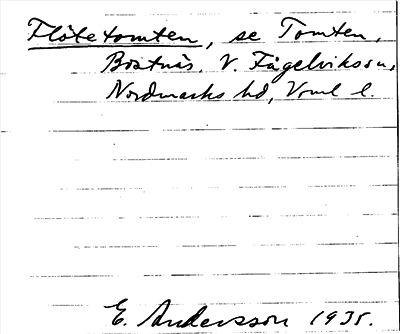 Flötetomten, se Tomten,
Boxtnäs. V. Fågelviks sn,
Nordmarks hd, Vrml l.
E. Andersson 1935.